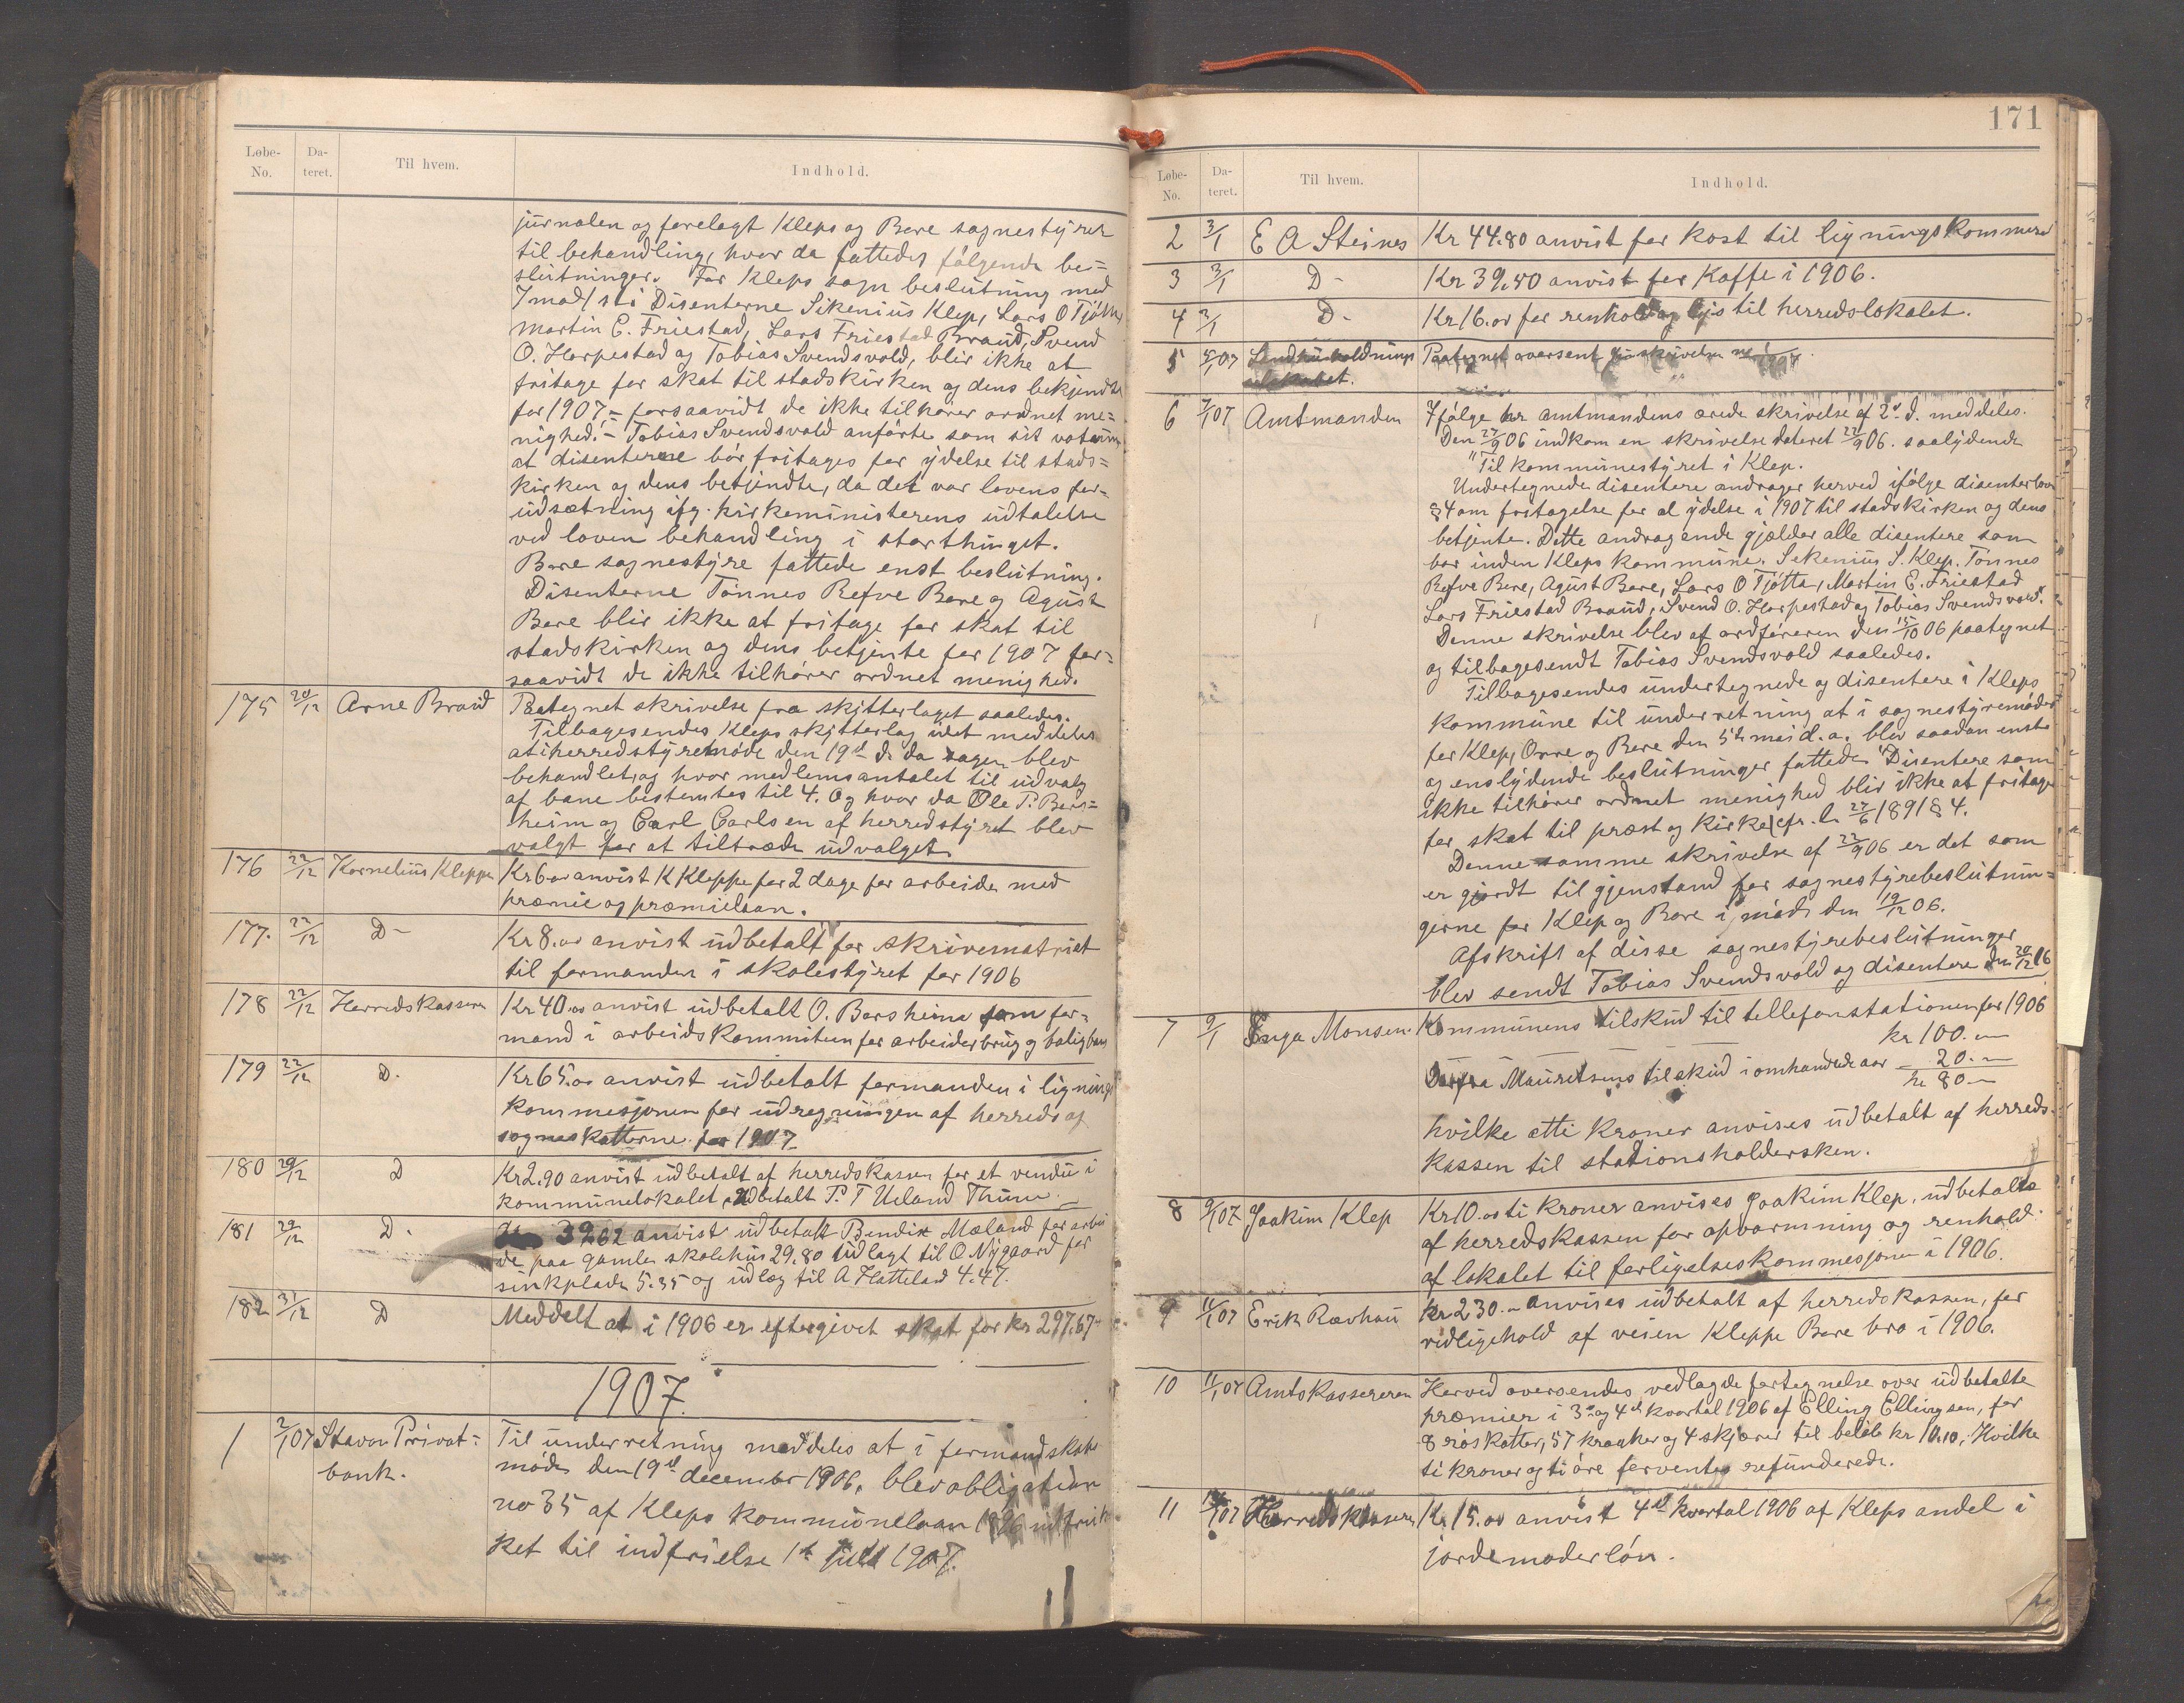 Løbe-No. Da-teret. Til hvem. Indhold.
jurnalen og forelagt Klep og Bore sognestyrer
til behandling, hvor da fattedes følgende be=
slutninger. For Kleps sogn beslutning med
7 mod 1 st: Disenterne Sikenius Klep, Lars O Tjøtta
Martin E. Friestad, Lars Friestad Braud, Svend
O. Horpestad og Tobias Svendsvold, blir ikke at
fritage for skat til stadskirken og dens bekjendte
for 1907,- forsaavidt de ikke tilhører ordnet me=
nighed.- Tobias Svendsvold anførte som sit votum
at disenterene bør fritages for ydelse til stads=
kirken og dens betjendte, da det var lovens for=
udsætning ifg. kirkeministerens udtalelse
ved loven behandling i storthinget.
Bore sognestyre fattede enst beslutning.
Disenterne Tønnes Refve Bore og Agust
Bore blir ikke at fritage for skat til
stadskirken og dens betjente for 1907 for=
saavidt de ikke tilhører ordnet menighed.
175 20/12 Arne Braud Paategnet skrivelse fra skytterlaget saaledes.
Tilbagesendes Kleps skytterlag idet meddeles
at i herredstyremøde den 19de ds da sagen blev
behandlet, og hvor medlemsantalet til udvalg
af bane bestemtes til 4. Og hvor da Ole P. Bors=
heim og Carl Carlsen af herredstyret blev
valgt for at tiltræde udvalget.
176 22/12 Kornelius Kleppe Kr 6.00 anvist K Kleppe for 2 dage for arbeide med
præmie og præmielaan.
177. 22/12 D- Kr 8.00 anvist udbetalt for skrivematriet
til formanden i skolestyret for 1906
178 22/12 Herredskasseren Kr 40.00 anvist udbetalt O. Borsheim som for=
mand i arbeidskommiteen for arbeiderbrug og boliglaan
179 22/12 D. Kr 65.00 anvist udbetalt formanden i lignings
kommesjonen for udregningen af herreds og
sogneskatterne for 1907
180 29/12 D Kr 2.90 anvist udbetalt af herredskassen for et vendu i
kommunelokalet, udbetalt P. T Ueland Thime.
181 29/12 D. 3962 anvist udbetalt Bendix Mæland for arbei
de paa gamle skolehus 29.80 udlagt til O. Nygaard for
sinkplade 5.35 og udlæg til A Hattelad 4.47.
182 31/12 D Meddelt at i 1906 er eftergivet skat for kr 297.67
1907.
1 2/1 07 Stavan Privat= Til underretning meddeles at i formandskabs
bank. møde den 19de decembr 1906, blev obligation
no 35 af Kleps kommunelaan 1896
ket til indfrielse 1ste juli 1907.
171
Løbe-No. Da-teret. Til hvem. Indhold.
2 3/1 E A Steines Kr 44.80 anvist for kost til ligningskommesi
3 3/1 D- Kr 39.40 anvist for kaffe i 1906.
4 3/1 D- Kr 16.00 for renhold og lys til herredslokalet.
5 5/1 07 Landhusholdnings Paategnet oversent
selskabet.
6 7/1 07 Amtmanden Ifølge hr amtmandens ærede skrivelse af 2d d. meddeles.
Den 27/9 06 indkom en skrivelse dateret 22/9 06. saalydende
"Til kommunestyret i Klep.
Undertegnede disentere andrager herved ifølge disenterlov
§4 om fritagelse for al ydelse i 1907 til stadskirken og dens
betjente. Dette andragende gjælder alle disentere som
bor inden Kleps kommune. Sikenius S. Klep. Tønnes
Refve Bore, Agust Bore, Lars O Tjøtta, Martin E. Friestad
Lars Friestad Braud, Svend O. Horpestad og Tobias Svendsvold".
Denne skrivelse blev af ordføreren den 15/10 06 paategnet
og tilbagesendt Tobias Svendsvold saaledes.
Tilbagesendes undertegnede og disentere i Kleps
kommune til underretning at i sognestyremøder
for Klep, Orre og Bore den 5te mai d.a. blev saadan enst
og enslydende beslutninger fattede "Disentere som
ikke tilhører ordnet menighed blir ikke at fritage
for skat til præst og kirke cfr. l. 27/6 1891 § 4.
Denne samme skrivelse af 22/9 06 er det som
er gjordt til gjenstand for sognestyrebeslutnin=
gerne for Klep og Bore i møde den 19/12 06.
Afskrift af disse sognestyrebeslutninger
blev sendt Tobias Svendsvold og disentere den 20/12 06
7 9/1 Inga Monsen Kommunens tilskud til tellefonstationen for 1906
kr 100.-
Derfra Mauritsens tilskud i omhandlede aar - 20.-
kr 80-
hvilke otti kroner anvises udbetalt af herreds-
kassen til stationsholdersken.
8 9/1 07 Joakim Klep Kr 10.00 ti kroner anvises Joakim Klep, udbetalte
af herredskassen for opvarmning og renhold
af lokalet til forligelseskommesjonen i 1906.
9 11/1 07 Erik Rævhau Kr 230.- anvises udbetalt af herredskassen, for
vedligehold af veien Kleppe Bore bro i 1906.
10 11/1 07 Amtskassereren Herved oversendes vedlagde fortegnelse over udbetalte
præmier i 3de og 4de kvartal 1906 af Elling Ellingsen, for
8 røiskatter, 57 kraaker og 4 skjærer til beløb kr 10.10. Hvilke
ti kroner og ti øre forventes refunderede.
11 07 Herredskasseren Kr 15.00 anvist 4de kvartal 1906 af Kleps andel i
jordemoderløn.